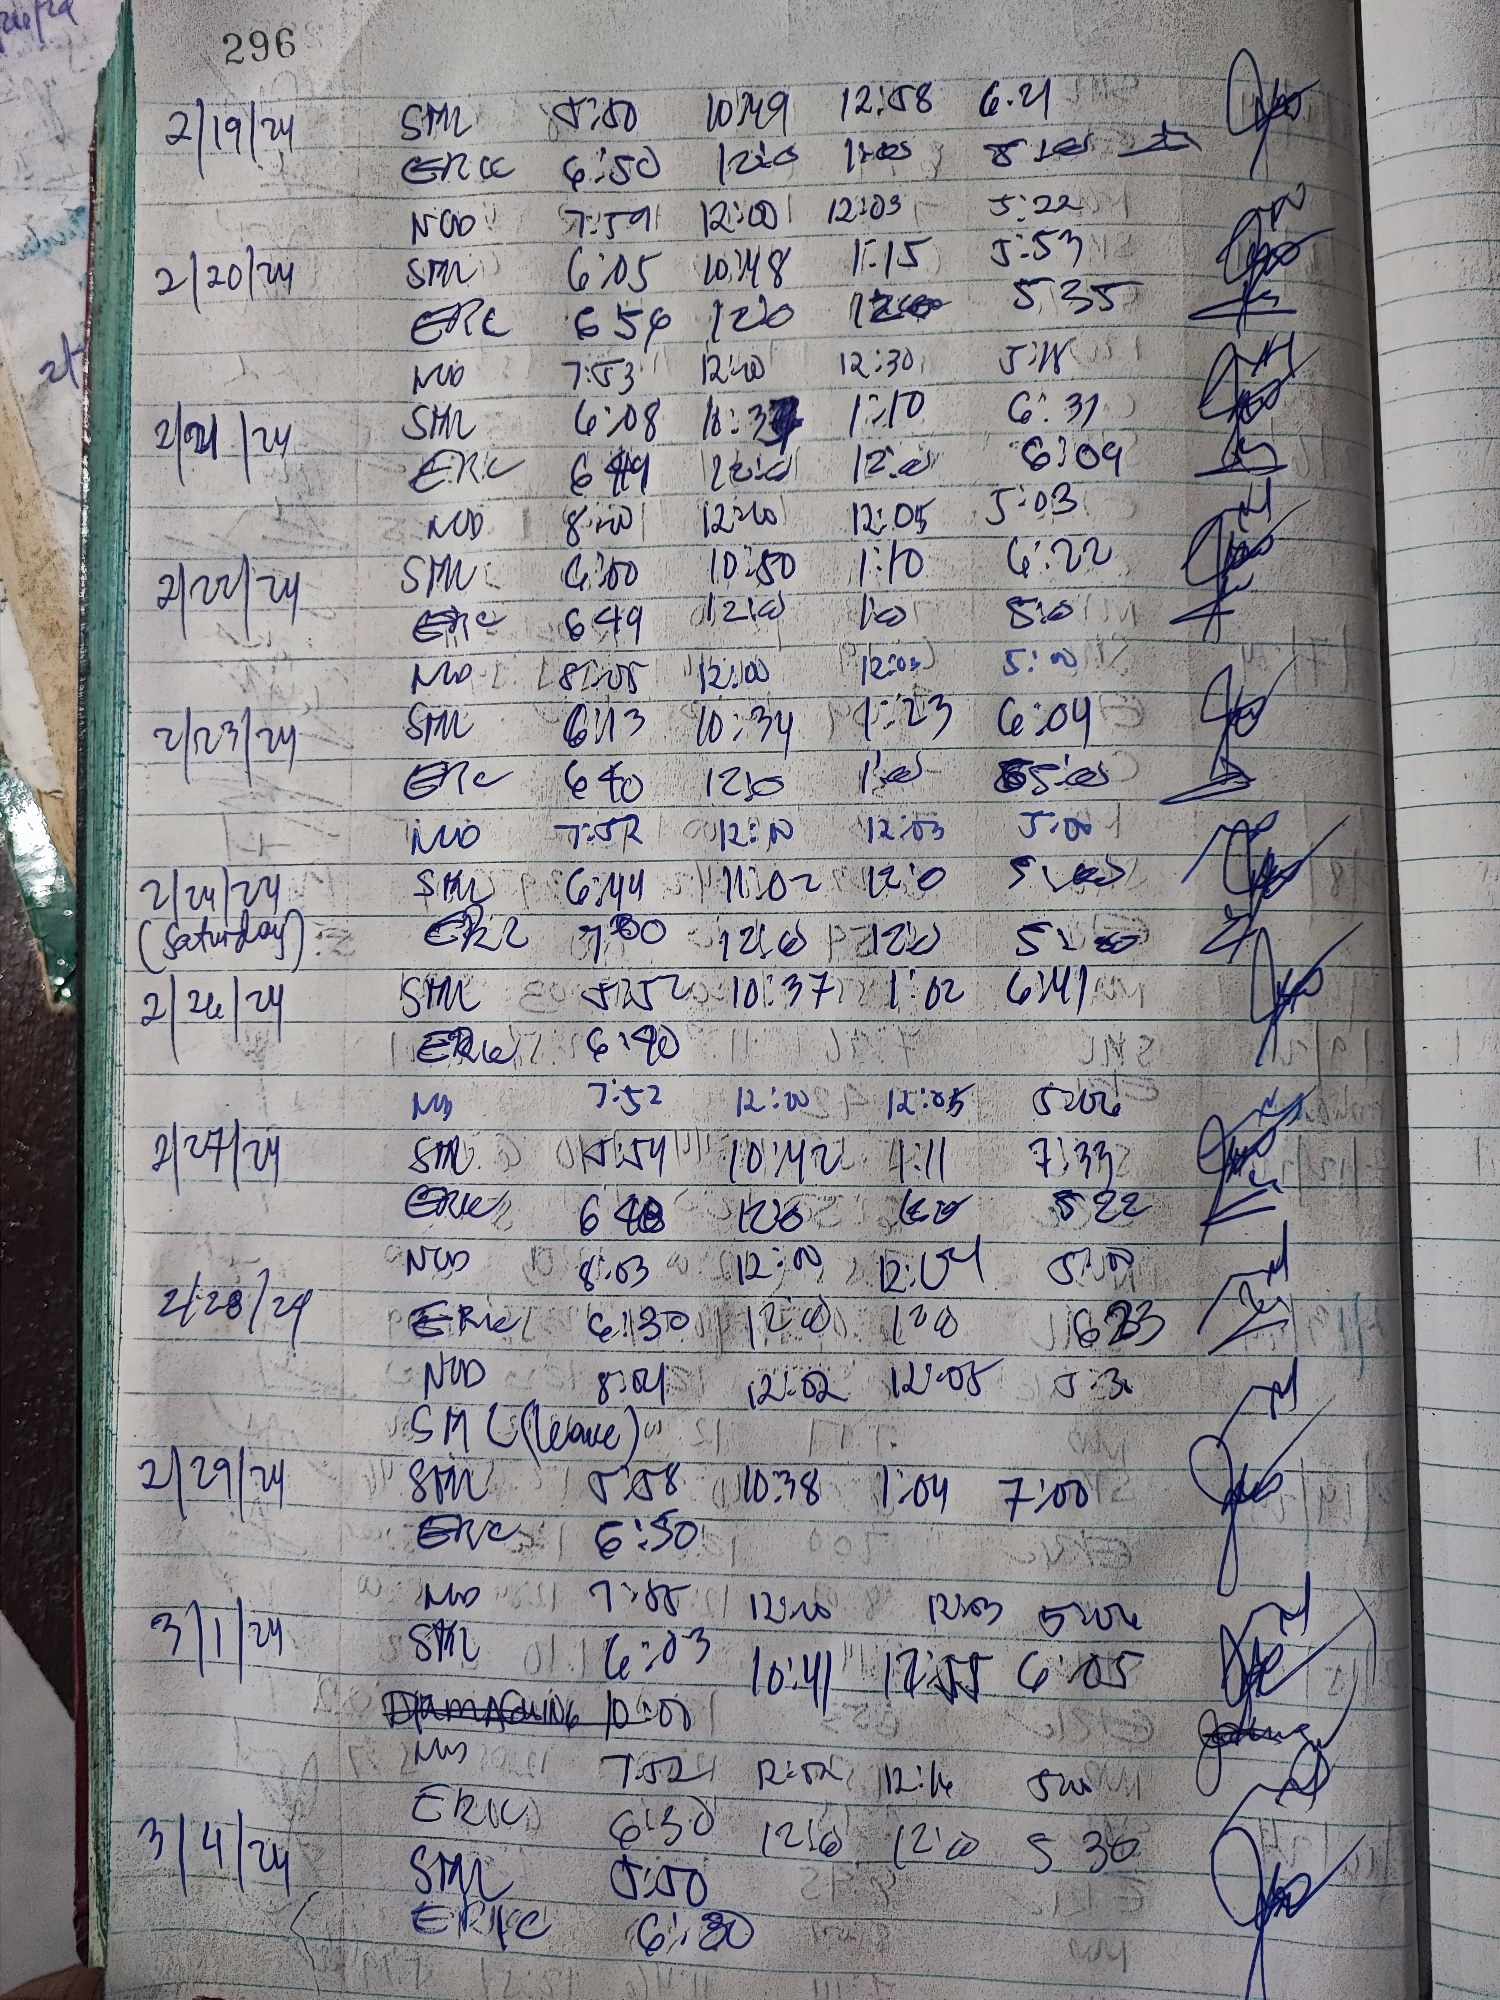 296
2/19/24 SML 5:50 10:49 12:58 6:21
ERIC 6:50 12:0 1:00
NOD 7:59 12:00 12:03 5:22
2/20/24 SML 6:05 10:48 1:15 5:53
ERIC 6 54 12:0 5 35
NOD 7:53 12:00 12:30 5:18
2/21/24 SML 6:08 1:10 6:31
ERIC 6 49 12:0 12:0 6:09
NOD 8:00 12:00 12:05 5:03
2/22/24 SML 6:00 10:50 1:10 6:22
ERIC 6 49 12:0 1:0 5:0
NOD 8:05 12:00 12:05 5:00
2/23/24 SML 6:13 10:34 1:23 6:04
ERIC 6 40 12:0 1:00
NOD 7:52 12:00 12:03 5:00
2/24/24 SML 6:44 11:02 12:0 5:00
(Saturday) ERIC 7 00 12:0 12:0 5:00
2/26/24 SML 5:52 10:37 1:02 6:41
ERIC 6:40
NOD 7:52 12:00 12:05 5:06
2/27/24 SML 5:54 10:42 1:11 7:33
ERIC 12:0 5 22
NOD 8:03 12:00 12:04 5:00
2/28/24 ERIC 6:30 12:0 1:0 6 23
NOD 8:04 12:02 12:05
SML (leave)
2/29/24 SML 5:58 10:38 1:04 7:00
ERIC 6:50
NOD 7:55 12:00 12:03 5:06
3/1/24 SML 6:03 10:41 12:55 6:05
10:00
NOD 7:52 12:02 12:16 5:00
ERIC 6:30 12:0 12:0 5 30
3/4/24 SML 5:50
ERIC 6:30